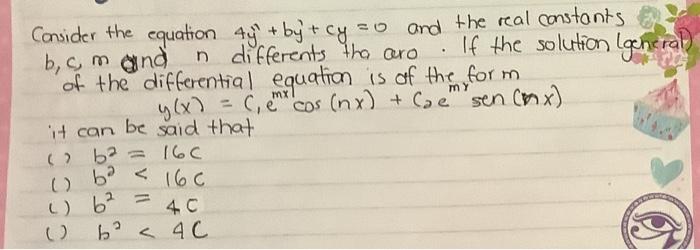 Consider the equation 4y'' + by' + cy = 0 and the real constants
b, c, m and n differents tha zero. If the solution (general)
of the differential equation is of the form
y(x) = C₁e^mx cos (nx) + C₂e^mx sen (nx)
it can be said that
( ) b² = 16c
( ) b² < 16c
( ) b² = 4c
( ) b² < 4c